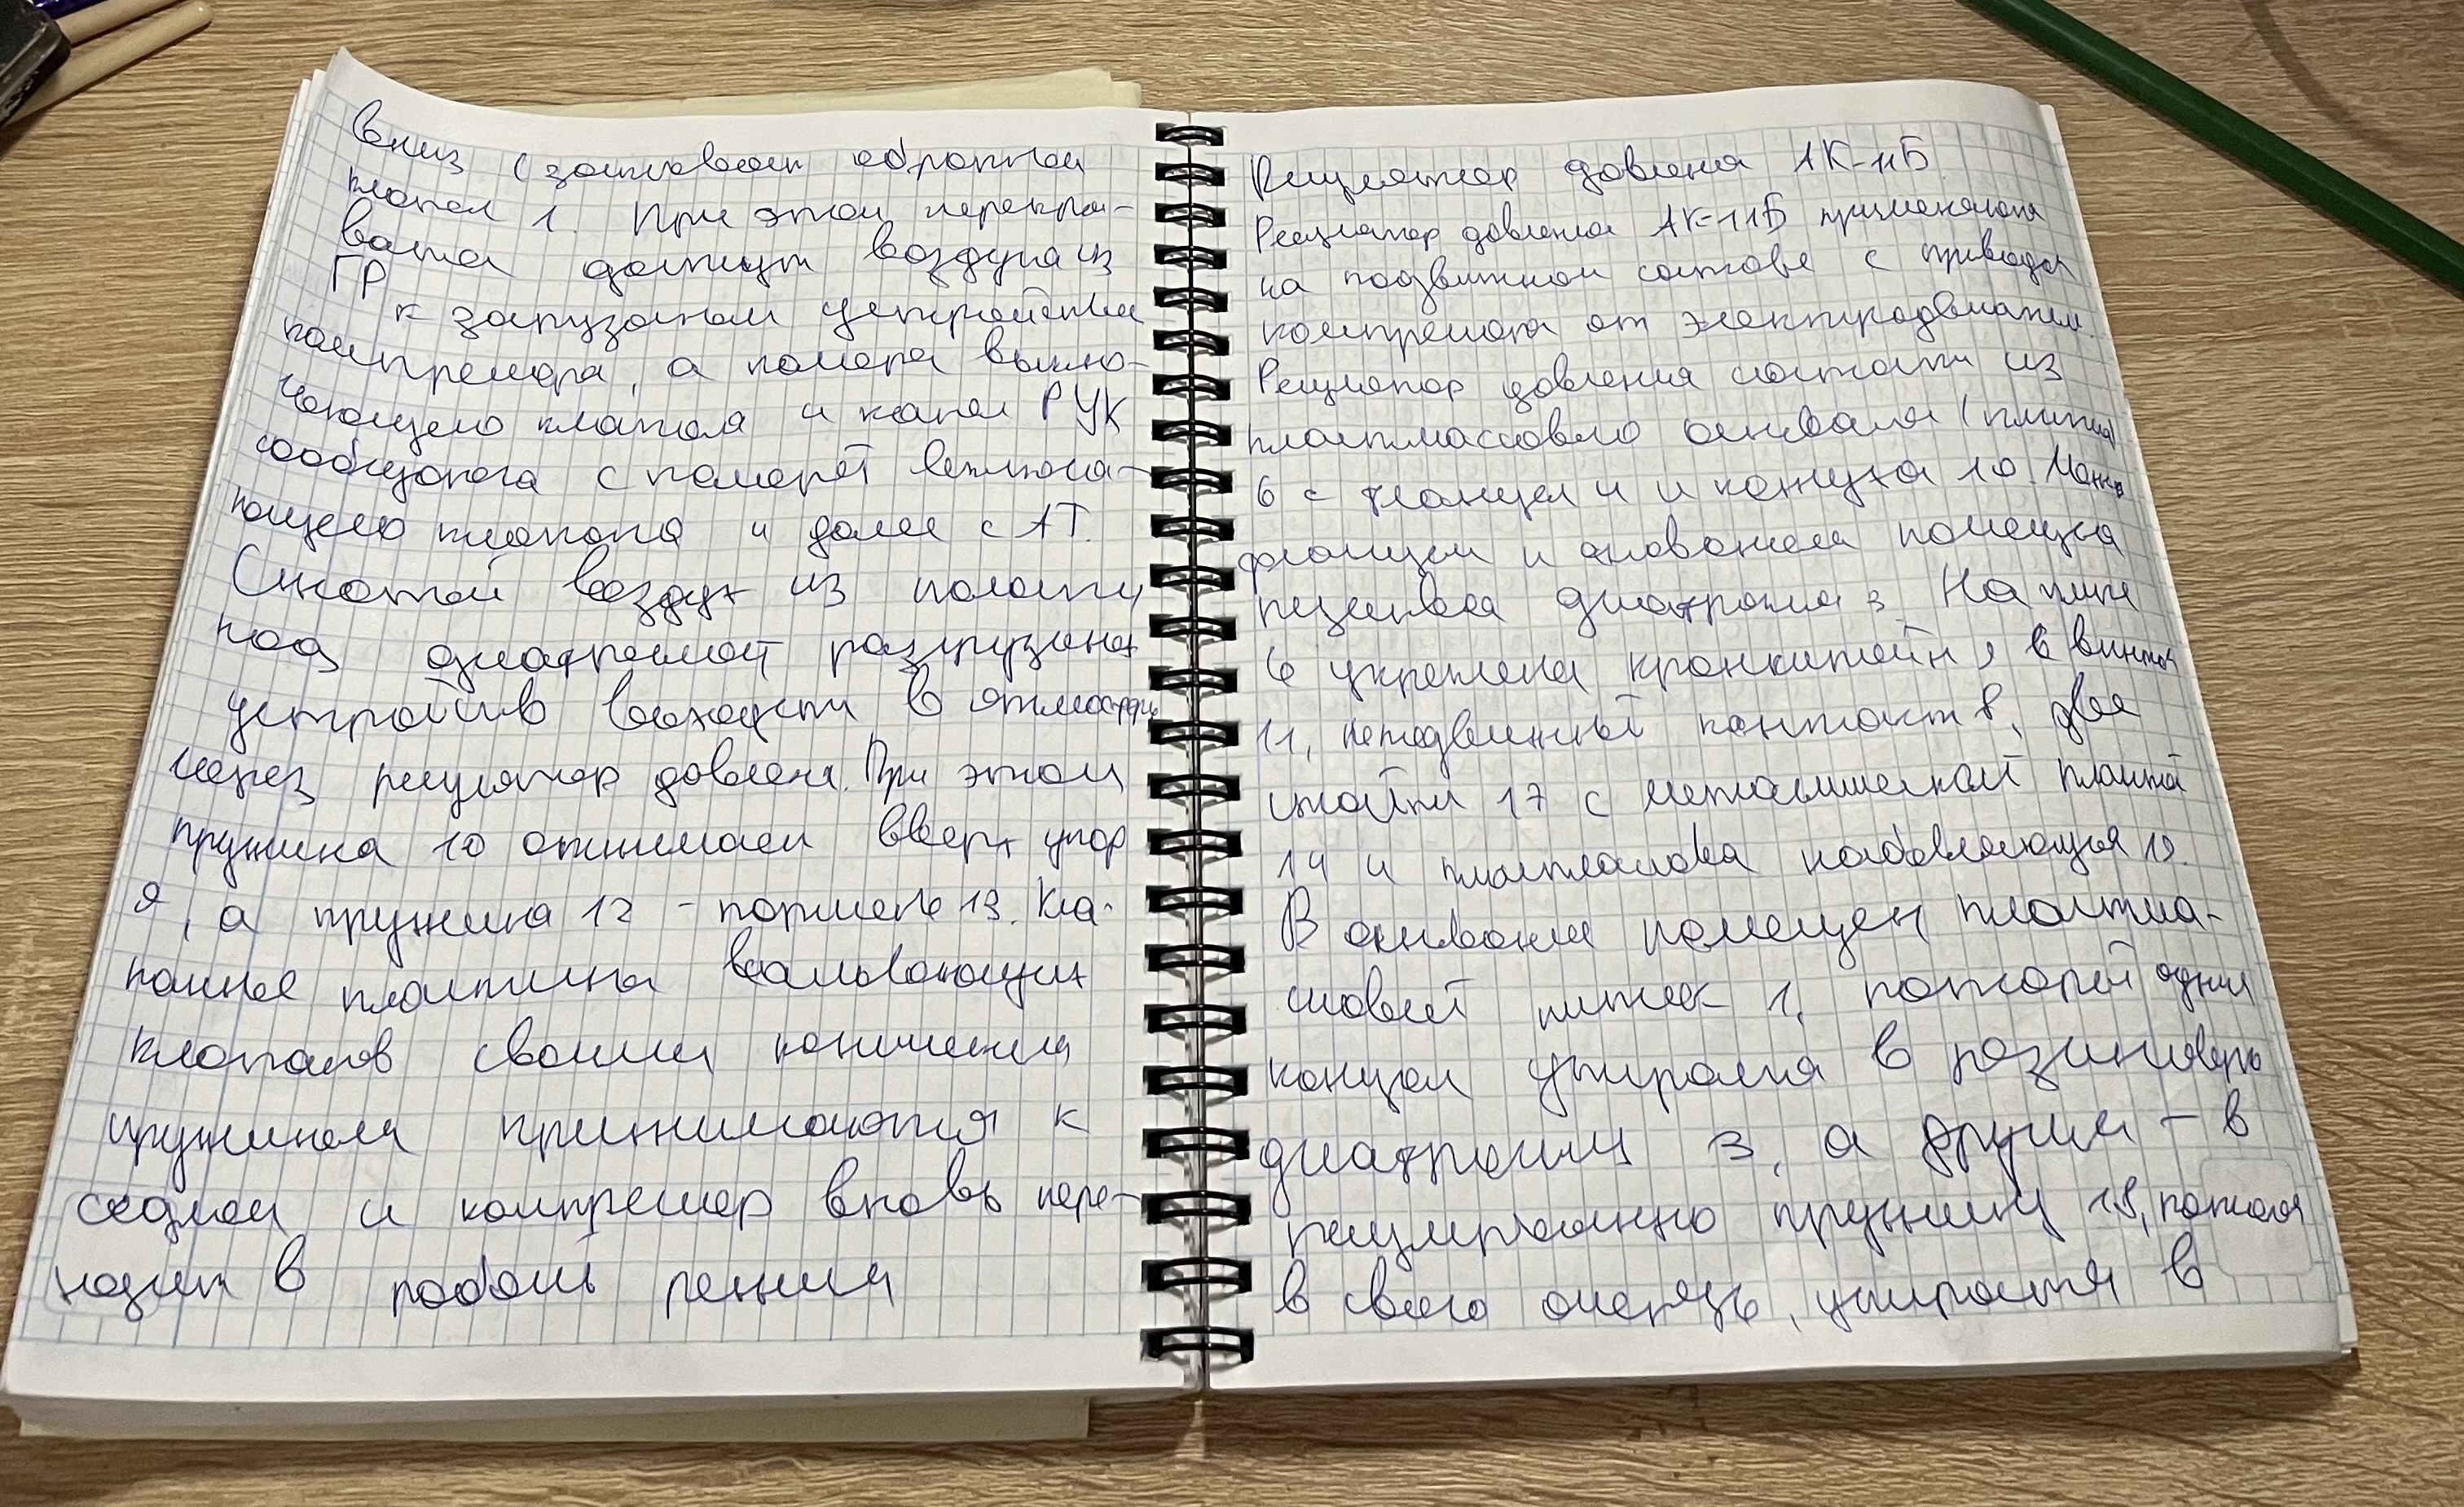 вниз (
клапан 1. При этом перекры-
вается доступ воздуха из
ГР
к разгузочным устройствам
компрессора, а камера выклю-
чающего клапана и канал РУК
сообщается с камерой включа-
ющего клапана и далее с АТ.
Сжатый воздух из полости
под диафрагмой разгрузочных
устройств выходит в атмосферу
через регулятор давления. При этом
пружина 10 отжимает вверх упор
а пружина 12 - поршень 13. Кла-
панные пластины всасывающих
клапанов своими коническими
пружинами прижимаются к
седлам и компрессор вновь пере-
ходит в рабочий режим
Регулятор давления АК-11Б
Регулятор давления АК-11Б применяется
на подвижном составе с приводом
компрессора от электродвигателя.
Регулятор давления состоит из
пластмассового основания (плиты)
6 с фланцем 4 и кожуха 10. Между
фланцем и основанием помещена
резиновая диафрагма 3. На плите
6 укреплена кронштейн, в винтом
11, неподвижный контакт 8, две
стойки 17 с металлической планкой
14 и пластмассовая направляющая 19.
В основании помещен пластма-
ссовый шток 1, который одним
концом упирается в резиновую
диафрагму 3, а другим - в
регулировочную пружину 18, которая
в свою очередь, упирается в